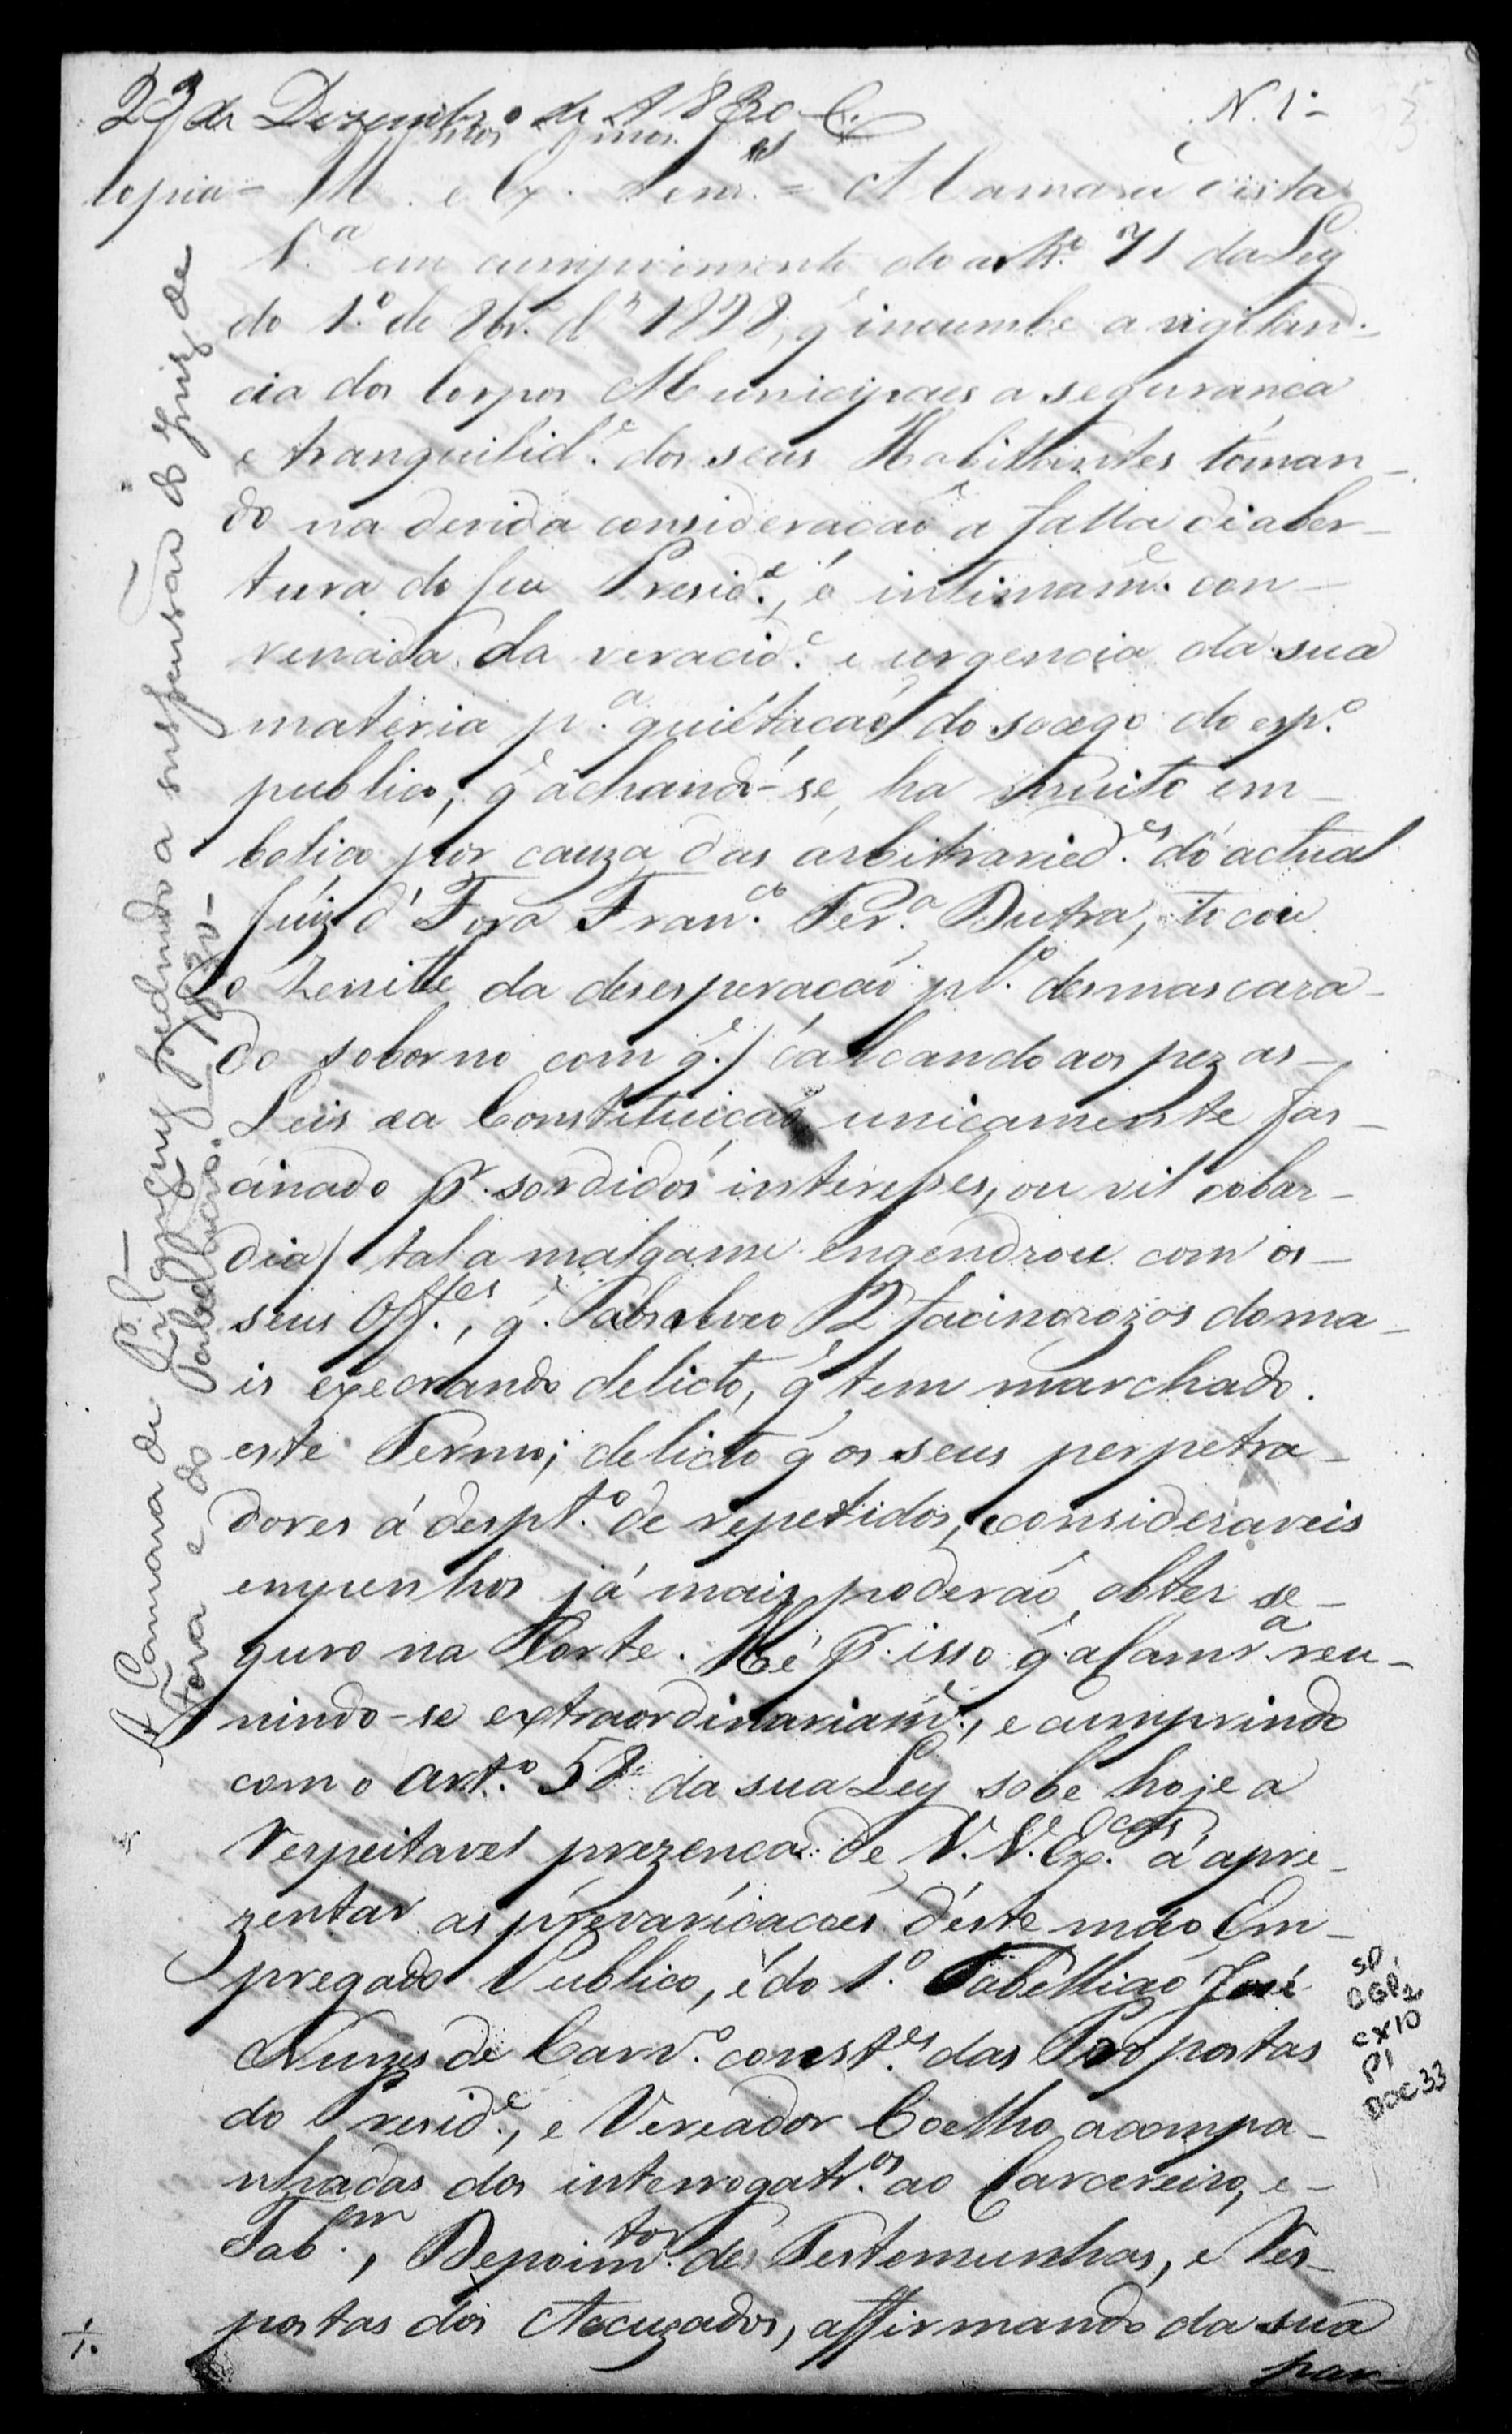 23 de Dezembro de 1830
N. 1º
Copia = Ill.mos e Ex.mos Senr.es = A Camara d'esta
V.a em cumprimento do artº. 71 da Ley
do 1.º de 8br.º d' 1828, q̃ incumbe a vigilan-
cia dos Corpos Municipaes a segurança
e tranquilid.e dos seus Habittantes toman-
do na devida consideração a falla d'aber-
tura do seu Presid.e, é intimam.e con-
vencida da veracid.e e urgencia da sua
materia p.a quiétação do socego do esp.º
publico; q̃ achando-se ha muito em
belico pór cauza das arbitraried.es do actual
Juiz d' Fora Fran.co Per.a Dutra, tocou
o Zenite da desesperacão pl.º desmascara-
do soborno com q̃ / calcando aos pez as-
Leis e a Constituicão unicamente fas-
cinado p.r sordidos interesses, ou vil cobar-
dia / tal amalgame engendrou com os-
seus Off.es, q̃ absolveo 12 facinorozos do ma-
is execrando delicto, q̃ tem marchado
este Termo; delicto q̃ os seus perpetra-
dores á despt.º de repetidos, e consideraveis
empenhos já mais poderão obter se-
guro na Corte. Hé p.r isso q̃ a Camr.a reu-
nindo-se extraordinariam.e, e cumprindo
com o art.º 58 da sua Ley sobe hoje a
respeitavel prezenca de V.V. Ex.cas á apre-
zentar as prevaricacões d'éste máo Em-
pregado Publico, e do 1.º Tabellião José
Nunes de Carv.º const.es das Propostas
do Presid.e, e Vereador Coelho acompa-
nhadas dos interrogatr.os ao Carcereiro, e-
Tab.am, Depoim.tos de Testemunhas, e Res-
postas dos Accuzados, affirmando da sua
par-
A Camara de pedindo a suspensão do Juiz de
Fora e do Tabellião.
SP
CGP2
CX10
P1
DOC 33